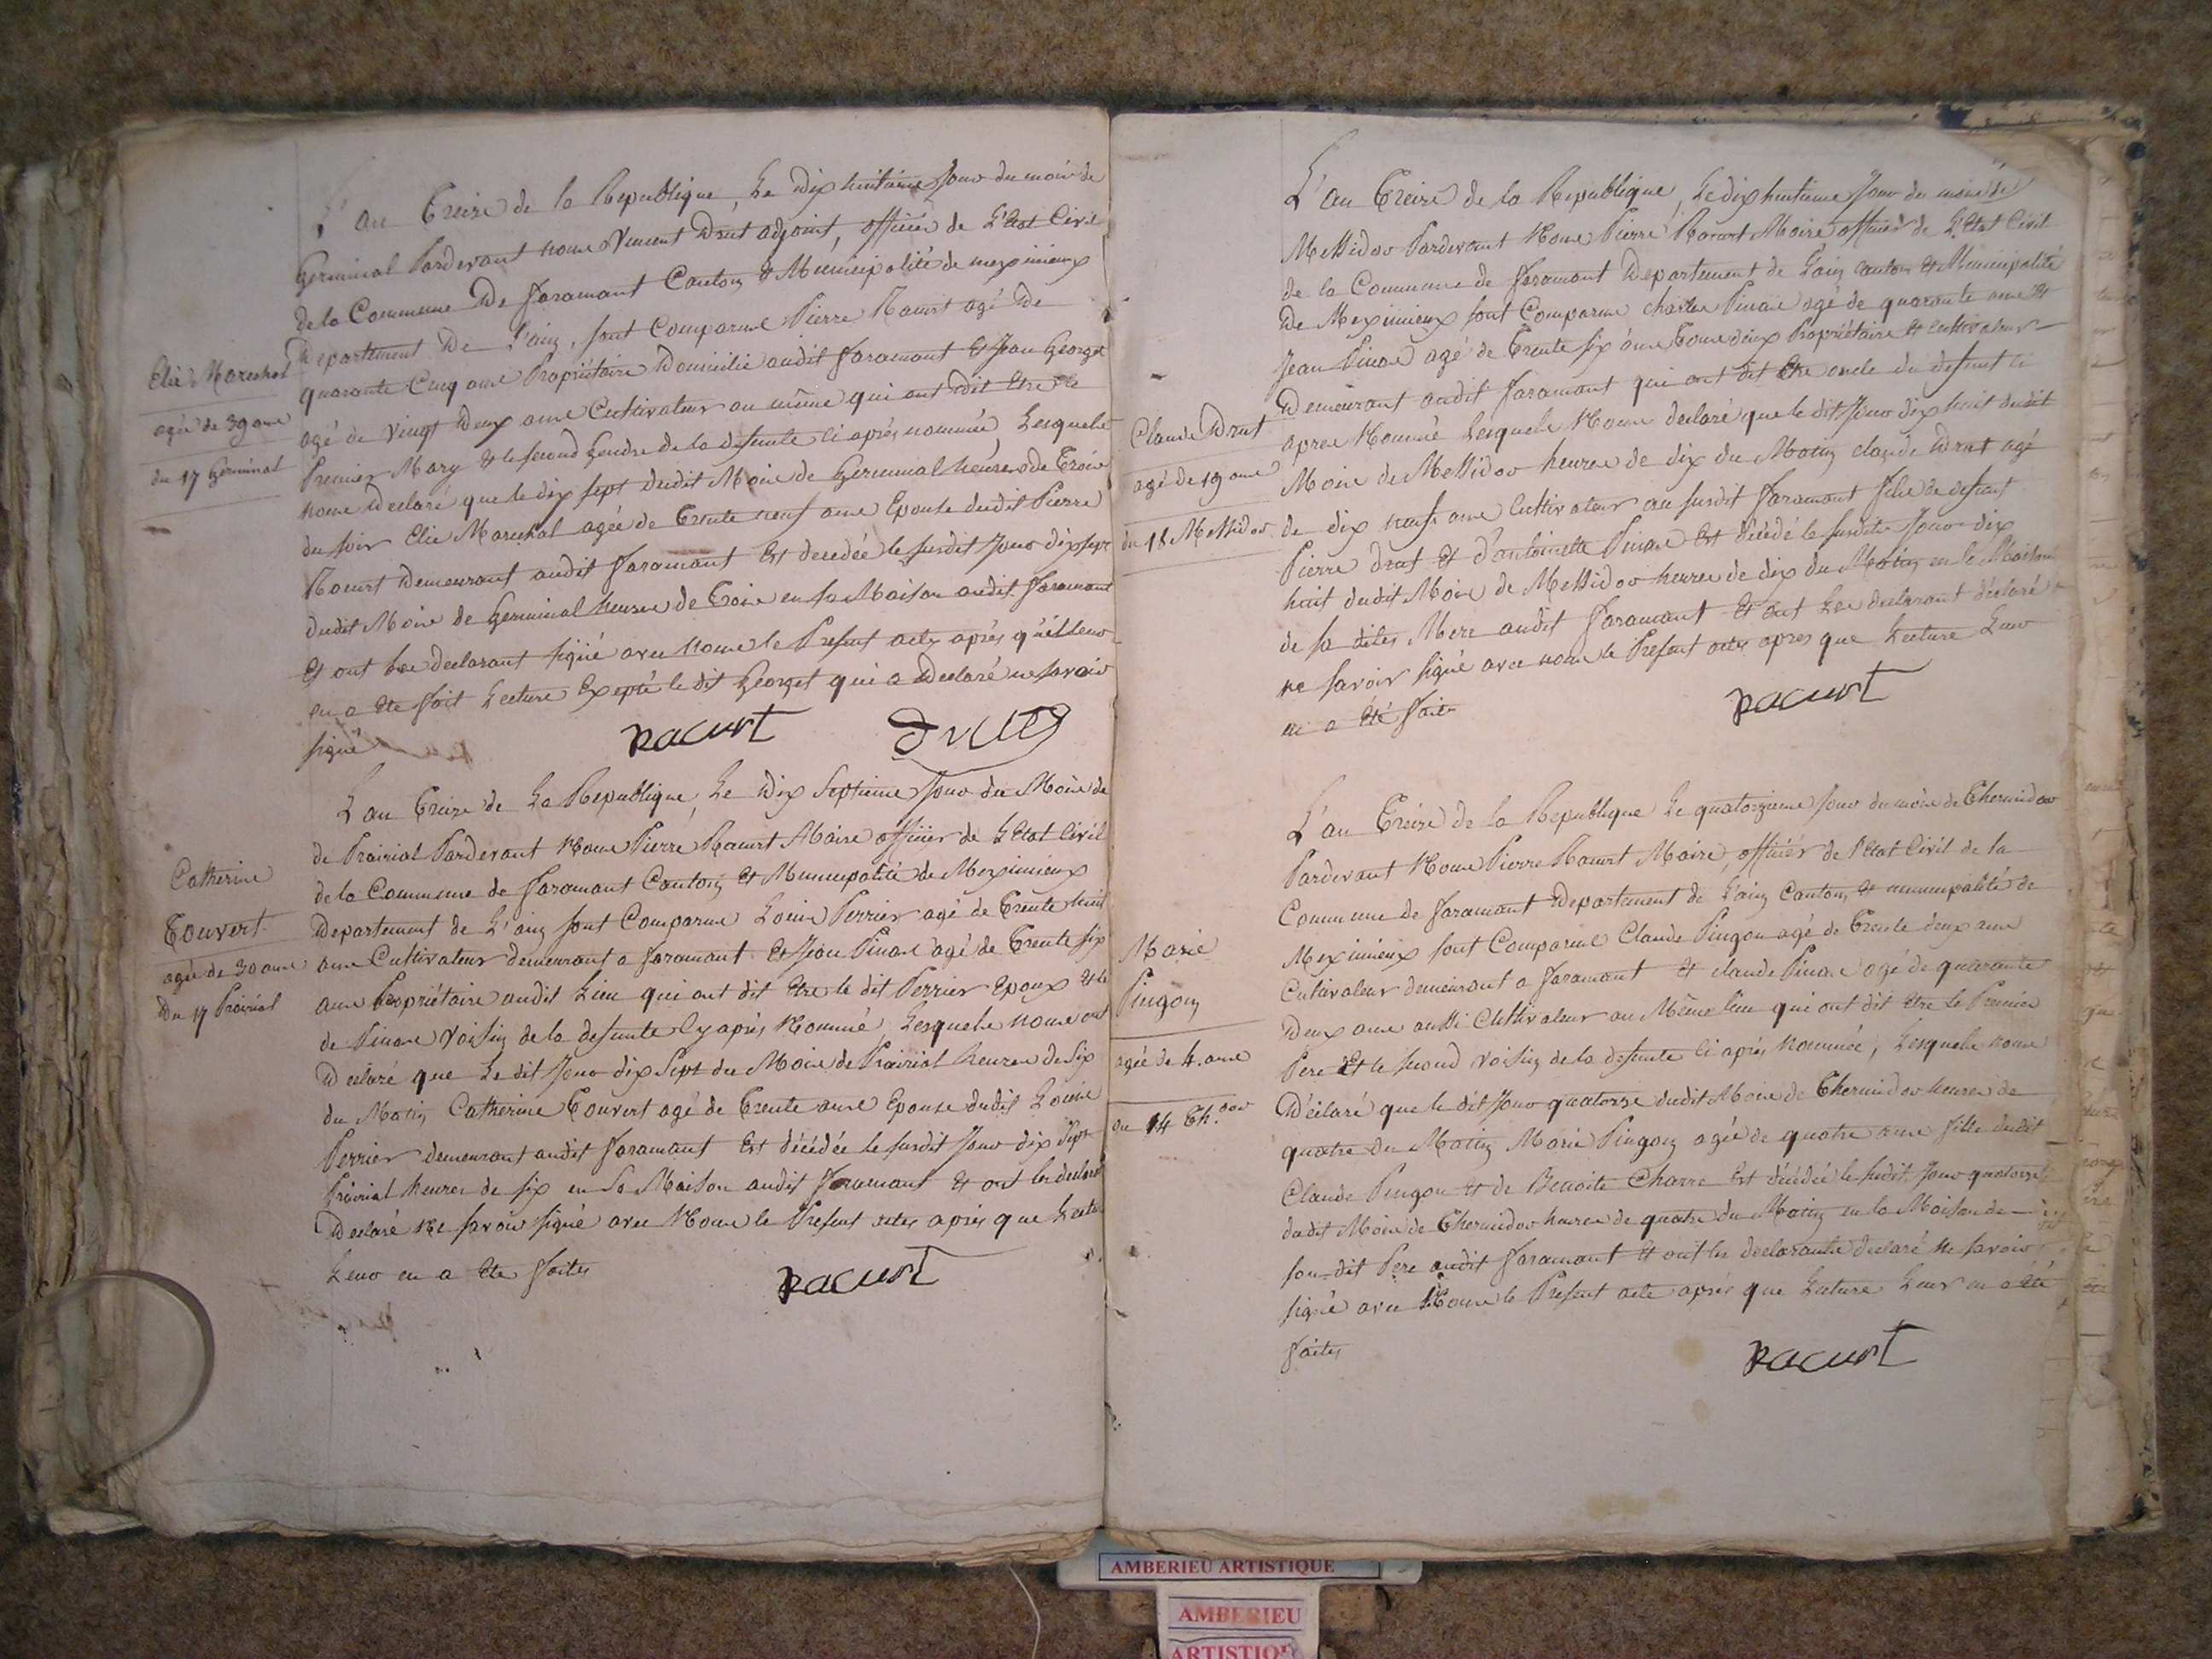 L'an Treize de la Republique, Le Dix huitieme Jour du mois de
Germinal Pardevant nous Vincent Drut adjoint, officier de L'Etat Civil
de la Commune De faramant Canton & Municipalité de meximieux
Departement De L'ain, sont Comparus Pierre Racurt agé De
quarante Cinq ans Propriétaire Domicilié audit faramant & Jean Georget
agé de vingt Deux ans Cultivateur au même qui ont dit Etre le
Premier Mary & le second Gendre de la defunte ci après nommée, Lesquels
nous Declaré que le dix sept dudit Mois de Germinal heures de Trois
du soir Elie Marechal agée de Trente neuf ans Epouse dudit Pierre
Racurt Demeurant audit faramant Est decedée le susdit Jour dix sept
dudit Mois de Germinal heures de Trois en sa Maison audit faramant
Et ont les declarant signé avec nous le Present acte après qu'il leur
en a Ete fait Lecture Excepté le dit Georget qui a Declaré ne savoir
signé
Racurt Drut
Elie Marechal
agée de 39 ans
du 17 Germinal
L'an Treize de La Republique, Le Dix Septieme Jour du Mois de
de Prairial Pardevant Nous Pierre Racurt Maire officier de L'Etat Civil
de la Commune de faramant Canton Et Municipalité de Meximieux
Departement de L'ain sont Comparus Louis Perrier agé de Trente huit
ans Cultivateur demeurant a faramant Et Jean Pinan agé de Trente six
ans Propriétaire audit Lieu qui ont dit Etre le dit Perrier Epoux & le
de Pinan Voisin de la defunte Cy après Nommé, Lesquels nous ont
Declaré que Le dit Jour dix Sept du Mois de Prairial heures de Six
du Matin Catherine Touvert agé de Trente ans Epouse dudit Louis
Perrier demeurant audit faramant Est décédée le susdit Jour dix Sept
Prairial heures de six en Sa Maison audit faramant Et ont les declarant
Declaré Ne savoir signé avec Nous le Present acte après que Lecture
Leur en a Ete faite
Racurt
Catherine
Touvert
agée de 30 ans
Du 17 Prairial
L'an Treize de la Republique, Le dix huitieme Jour du mois de
Messidor Pardevant Nous Pierre Racurt Maire officier de L'Etat Civil
de la Commune de faramant Departement de L'ain canton Et Municipalité
De Meximieux sont Comparus charles Pinan agé de quarante ans Et
Jean Pinan agé de Trente six ans Tous deux Propriétaire Et cultivateur
Demeurant audit faramant qui ont dit Etre oncle du defunt ci
apres Nommé Lesquels Nous declaré que le dit Jour dix huit dudit
Mois de Messidor heures de dix du Matin claude Drut agé
de dix neuf ans Cultivateur au susdit faramant fils de defunt
Pierre drut Et d'antoinette Pinan Est décédé le susdit Jour dix
huit dudit Mois de Messidor heures de dix du Matin en la Maison
de sa dite Mere audit faramant Et ont Les declarant déclaré
ne savoir signé avec nous le Present acte apres que Lecture Leur
en a Eté faite
Racurt
Claude Drut
agé de 19 ans
du 18 Messidor
L'an Treize de la Republique Le quatorzieme Jour du mois de Thermidor
Pardevant Nous Pierre Racurt Maire, officiér de l'Etat Civil de la
Commune de faramant Departement de L'ain Canton & municipalité de
Meximieux sont Comparus Claude Pingon agé de Trente deux ans
Cultivateur demeurant a faramant Et claude Pinan agé de quarante
Deux ans aussi Cultivateur au Même Lieu qui ont dit Etre le Premier
Pere Et le second Voisin de la defunte ci après Nommée, Lesquels nous
Déclaré que le dit Jour quatorze dudit Mois de Thermidor heures de
quatre du Matin Marie Pingon agée de quatre ans fille dudit
Claude Pingon Et de Benoite Charre Est décédée le susdit Jour quatorze
dudit Mois de Thermidor heures de quatre du Matin en la Maison de
son dit Pere audit faramant Et ont les declarants declaré Ne savoir
signé avec Nous le Present acte après que Lecture Leur en a Eté
faite
Racurt
Marie
Pingon
agée de 4. ans
du 14 Th.dor
AMBERIEU ARTISTIQUE
AMBERIEU
ARTISTIQ